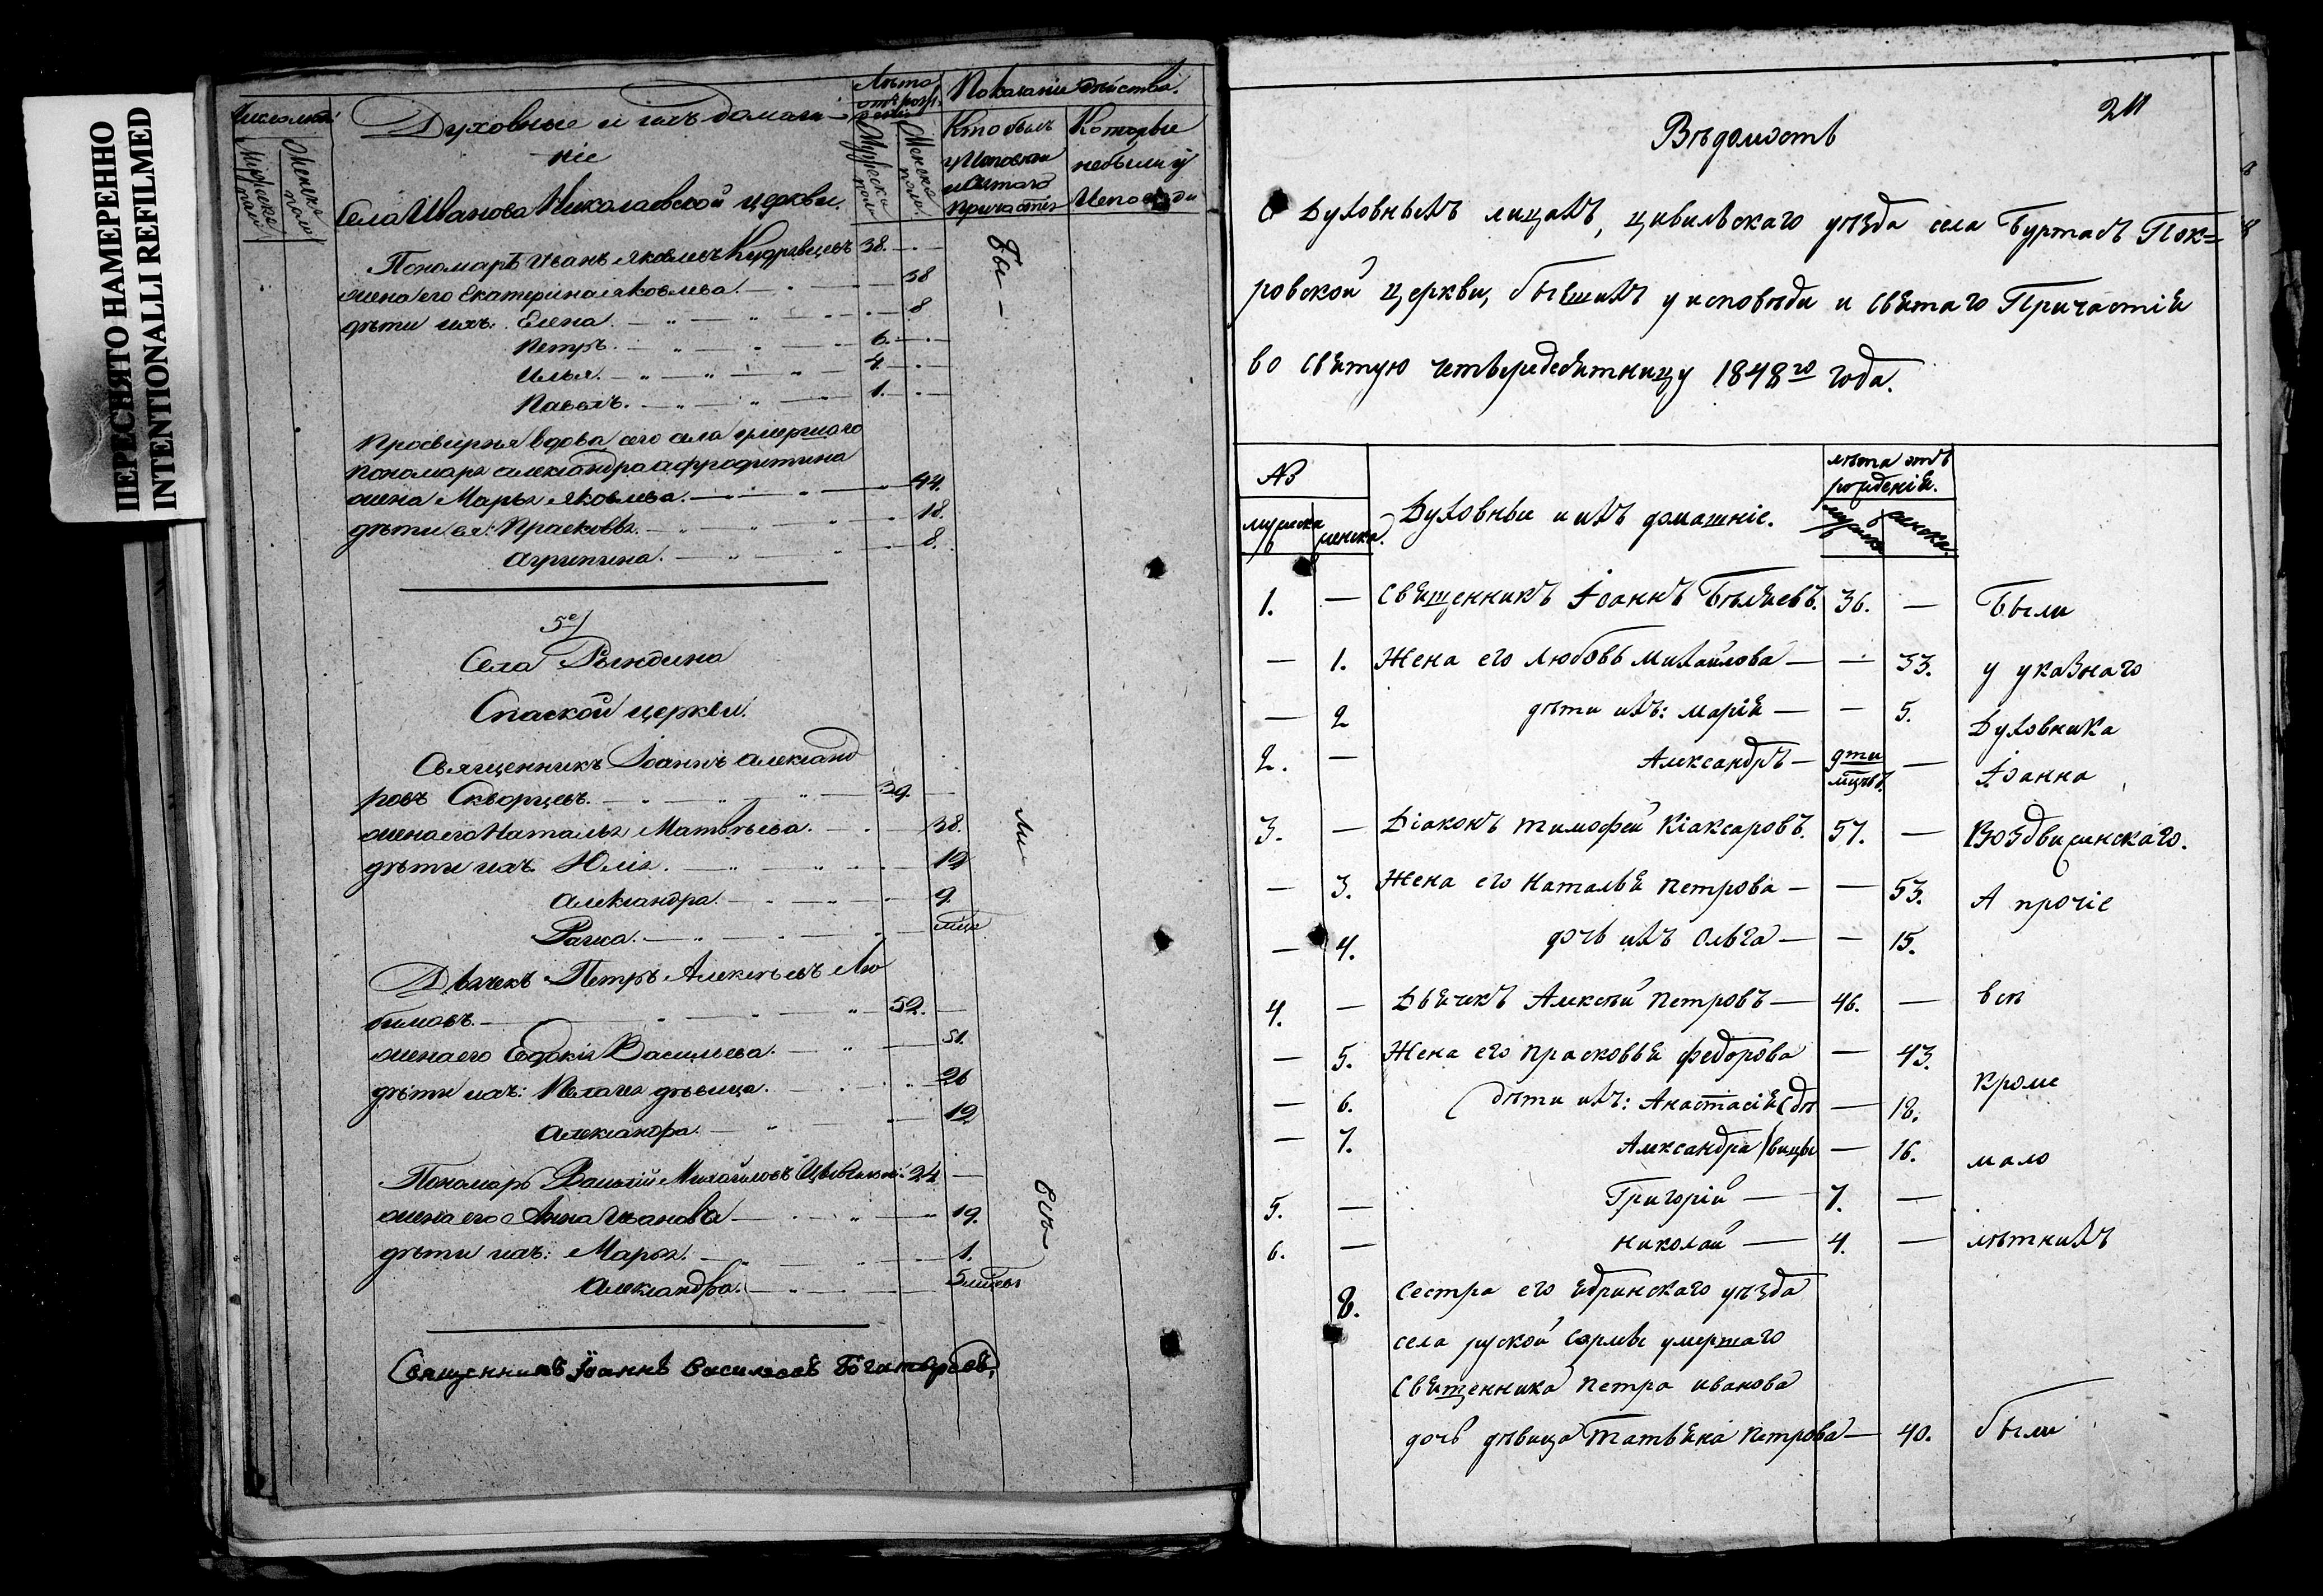 ПЕРЕСНЯТО НАМЕРЕННО
INTENTIONALLI REFILMED
Духовные и ихъ домаш-
ніе
Села Иванова Николаевской церкви.
Мужеска пола
Женска пола
Лѣта
отъ рож-
денія
Мужеска пола
Женска пола
Показаніе дѣйства.
Кто былъ
у Исповѣди
и святаго
причастія
Которые
небыли у
Исповѣди
Пономарь Иванъ Яковлевъ Кудрявцевъ 38.
жена его Екатерина Яковлева. 38
дѣти ихъ: Елена. 8
Петръ. 6.
Илья. 4.
Павелъ. 1.
Просвирня вдова сего села умершаго
пономаря Александра Афродитина
жена Марья Яковлева. 44.
дѣти ея: Прасковья. 18.
Агрипина. 8.
Бы-
5е)
Села Рындина
Спаской церкви.
Священникъ Іоаннъ Александ
ровъ Скворцевъ. 39.
жена его Наталья Матвѣева. 38.
дѣти ихъ Юлія. 19
Александра. 9.
Дьячекъ Петръ Алексѣевъ Лю
бимовъ. 52.
жена его Евдокія Васильева. 51.
дѣти ихъ: Пелагея дѣвица. 26
Александра. 19
Пономарь Василій Михайловъ 24
жена его Анна Иванова 19.
дѣти ихъ: Марья. 1.
Александра. 5 мѣсяц
ли
всѣ
Священникъ Іоаннъ Васильевъ Богатыревъ.
211
Вѣдомость
О Духовныхъ лицахъ, цивильскаго уѣзда села Буртасъ Пок=
ровской церкви, бывшихъ у исповѣди и святаго Причастія
во святую четыредесятницу 1848го года.
№
мужеска
женска.
Духовные и ихъ домашніе.
лѣта отъ
рожденія.
мужеска
женска.
1. — Священникъ Іоаннъ Бѣляевъ. 36. — Были
— 1. Жена его Любовь Михайлова — — 33. у указнаго
— 2 дѣти ихъ: Марія — — 5. Духовника
2. — Александръ — Іоанна
3. — Діаконъ Тимофей Кіаксаровъ. 57. — Воздвиженскаго.
— 3. Жена его Наталья Петрова — — 53. А прочіе
— 4. дочь ихъ Ольга — — 15.
4. — Дьячекъ Алексѣй Петровъ — 46. — всѣ
— 5. Жена его Прасковья Федорова — 43.
кроме
— 6. дѣти ихъ: Анастасія (дѣ — 18.
— 7. Александра /вицы — 16. мало
5. — Григорій — 7. —
6. — Николай — 4. — лѣтнихъ
8. Сестра его Ядринскаго уѣзда
села руской Сормы умершаго
Священника Петра Иванова
дочь дѣвица Татьяна Петрова — 40. были